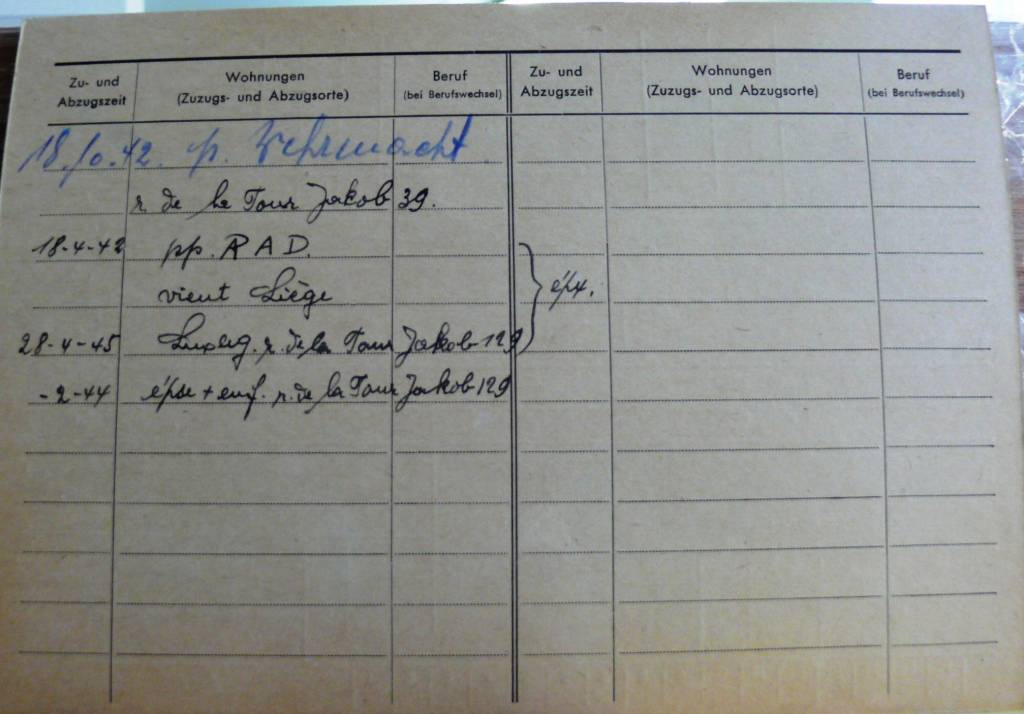 Zu- und Abzugszeit
Wohnungen
(Zuzugs- und Abzugsorte)
Beruf
(bei Berufswechsel)
Zu- und Abzugszeit
Wohnungen
(Zuzugs- und Abzugsorte)
Beruf
(bei Berufswechsel)
18.10.42. p. Wehrmacht
r. de la Tour Jakob 39.
18-4-42 pp. RAD.
vient Liège
épx.
28-4-45 Luxbg. r. de la Tour Jakob 129
-2-44 épse + enf. r. de la Tour Jakob 129